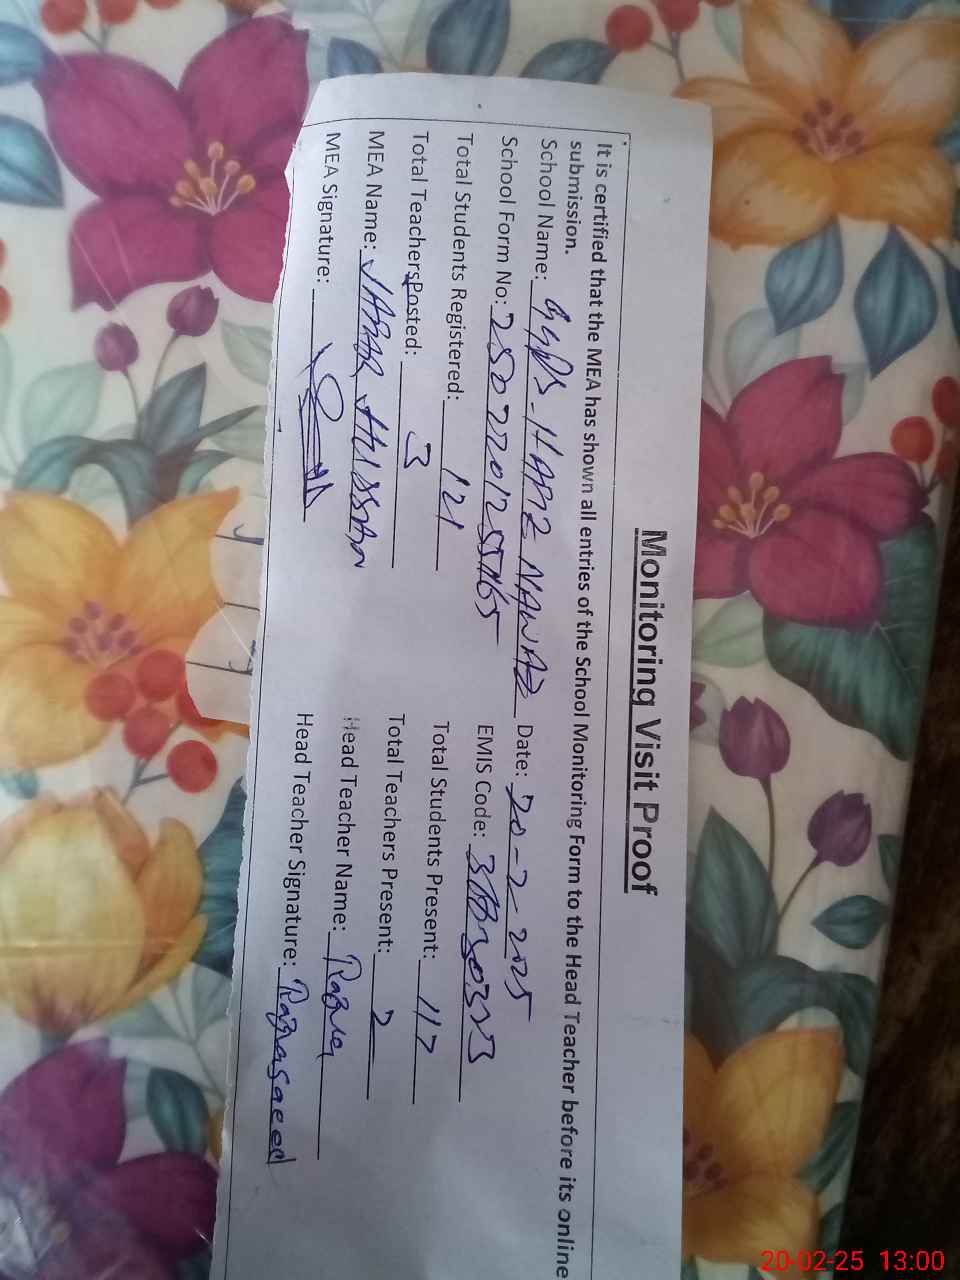 Monitoring Visit Proof
It is certified that the MEA has shown all entries of the School Monitoring Form to the Head Teacher before its online
submission.
School Name: GGPS. HAFIZ NAWAZ Date: 20-2-2025
School Form No: EMIS Code:
Total Students Registered: 121 Total Students Present: 117
Total Teachers Posted: 3 Total Teachers Present: 2
MEA Name: JABAR HUSSAIN Head Teacher Name: Rabia
MEA Signature: Head Teacher Signature: Rabia Saeed
20-02-25 13:00